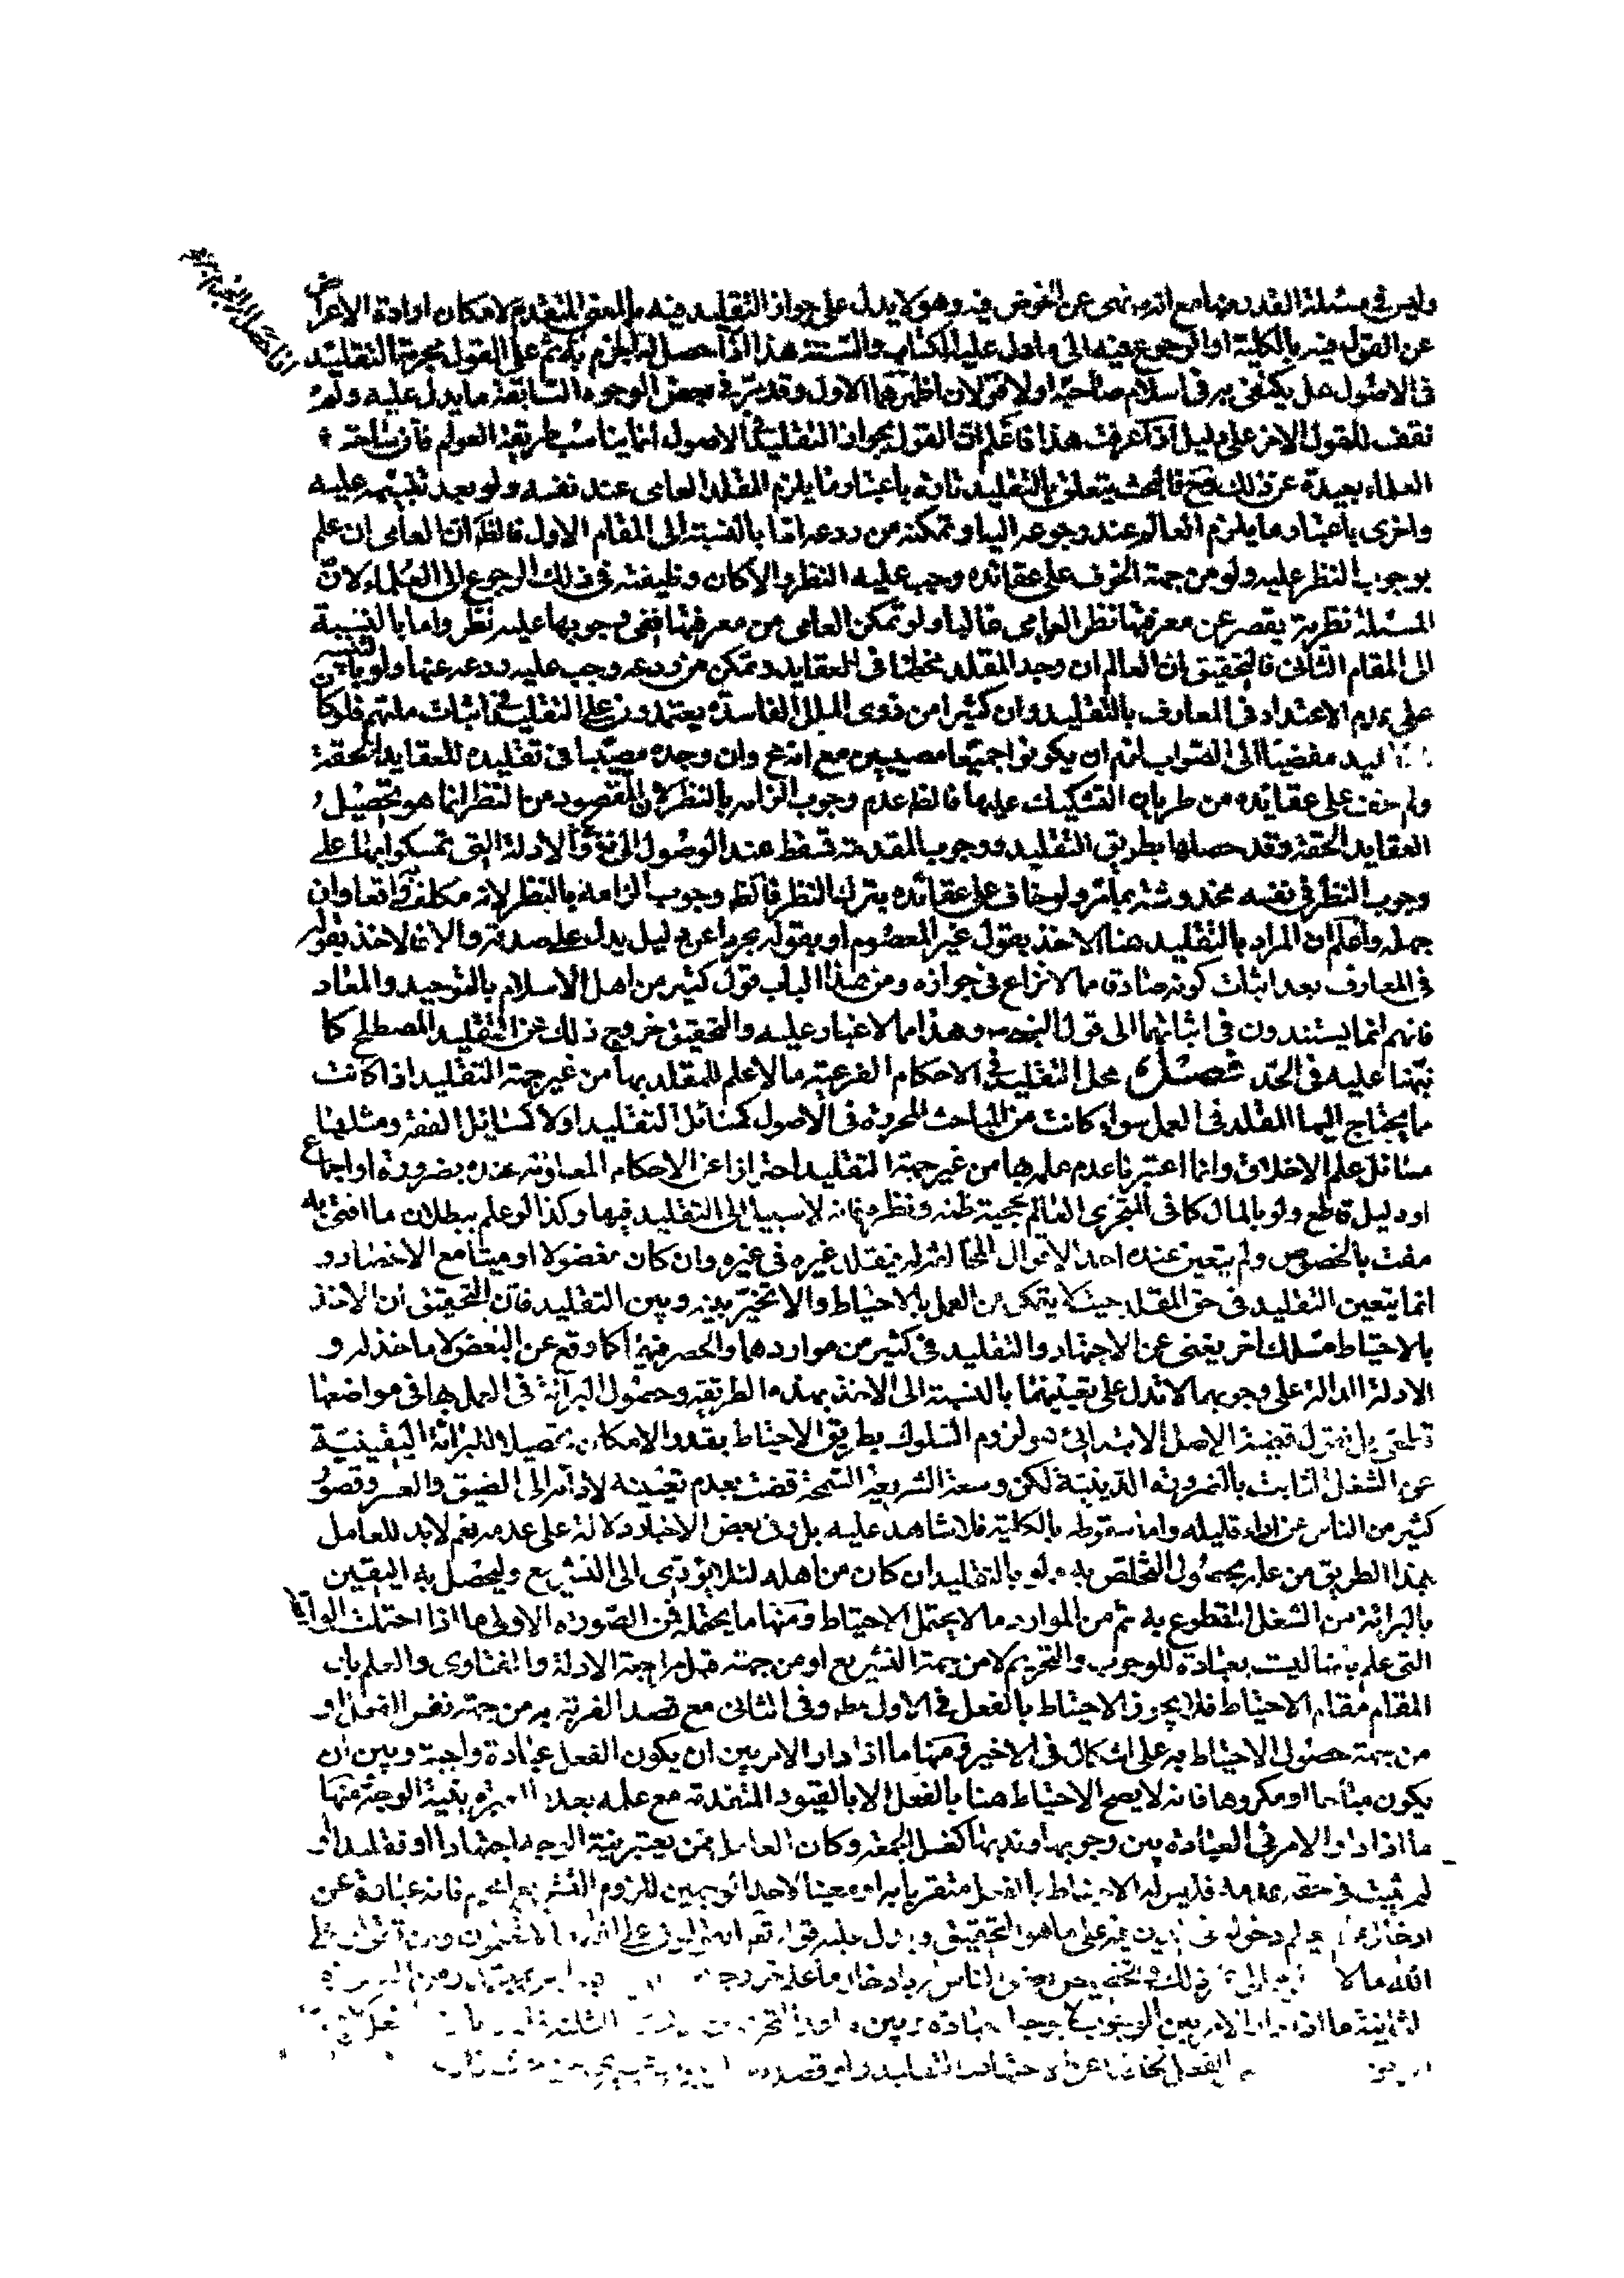 وليس في مسئلة القدر منها مع انه نهى عن الخوض فيه وهو لا يدل على جواز التقليد فيه بالمعنى المتقدم لامكان ارادة الاعراض
عن القول فيه بالكلية او الرجوع فيه الى ما دل عليه الكتاب والسنة هذا اذا حصل له الجزم به ثم على القول بحرمة التقليد
في الاصول هل يكتفى به في اسلام صاحبه او لا قولان اظهرهما الاول وقد مر في بعض الوجوه السابقة ما يدل عليه ولم
نقف للقول الاخر على دليل اذا عرفت هذا فاعلم ان القول بجواز التقليد في الاصول انما يناسب طريقة العوام فان ساحة
العلماء بعيدة عن ذلك وح فالبحث يتعلق بالتقليد تارة باعتبار ما يلزم المقلد العامي عند نفسه ولو بعد تنبيهه عليه
واخرى باعتبار ما يلزم العالم عند رجوعه اليه او تمكنه من ردعه اما بالنسبة الى المقام الاول فالظ ان العامي ان علم
بوجوب النظر عليه ولو من جهة الخوف على عقائده وجب عليه النظر والا كان وظيفته في ذلك الرجوع الى العلماء لان
المسئلة نظرية يقصر عن معرفتها نظر العوامى غالبا ولو تمكن العامى من معرفتها ففى وجوبها عليه نظر واما بالنسبة
الى المقام الثانى فالتحقيق ان العالم ان وجد المقلد مخطئا في العقايد وتمكن من ردعه وجب عليه ردعه عنها ولو بالتنبيه
على عدم الاعتداد في المعارف بالتقليد وان كثيرا من ذوى الملل الفاسدة يعتمدون على التقليد في اثبات ملتهم فلو كان
مفضيا الى الصواب لزم ان يكونوا جميعا مصيبين مع انه ع وان وجده مصيبا في تقليده للعقايد الحقة
ولم يخف على عقائده من طريان التشكيك عليها فالظ عدم وجوب الزامه بالنظر لان المقصود من النظر انما هو تحصيل
العقايد الحقة وقد حصلها بطريق التقليد ووجوب المقدمة تسقط عند الوصول الى والادلة التى تمسكوا بها على
وجوب النظر في نفسه مخدوشة بما مر ولو خاف على عقائده بترك النظر فالظ وجوب الزامه بالنظر لانه مكلف واقعا وان
جهله واعلم ان المراد بالتقليد هنا الاخذ بقول غير المعصوم او بقوله مجردا عن دليل يدل على صدقه والا فالاخذ بقوله
في المعارف بعد اثبات كونه صادقا مما لا نزاع في جوازه ومن هذا الباب قول كثير من اهل الاسلام بالتوحيد والمعاد
فانهم انما يستندون في اثباتهما الى قول وهذا مما لا غبار عليه والتحقيق خروج ذلك عن التقليد المصطلح كما
نبهنا عليه في الحد فصل محل التقليد في الاحكام الفرعية ما لا علم للمقلد بها من غير جهة التقليد اذا كانت
مما يحتاج اليها المقلد في العمل سواء كانت من المباحث المحررة في الاصول كمسائل التقليد او لا كمسائل الفقه ومثلها
مسائل علم الاخلاق وانما اعتبرنا عدم علمه بها من غير جهة التقليد احترازا عن الاحكام المعلومة عنده بضرورة او اجماع
او دليل قاطع ولو بالمال كما في المتجزى العالم بحجية ظنه ونظره فانه لا سبيل الى التقليد فيها وكذا لو علم ببطلان ما افتى به
مفت بالخصوص ولم يتعين عنده احد الاقوال المخالفة له فيقلد غيره في غيره وان كان مفضولا او ميتا مع الانحصار و
انما يتعين التقليد في حق المقلد حيث لا يتمكن من العمل بالاحتياط والا تخير بينه وبين التقليد فان التحقيق ان الاخذ
بالاحتياط مسلك اخر يغنى عن الاجتهاد والتقليد في كثير من مواردهما والحصر فيهما كما وقع عن البعض لا ماخذ له و
الادلة الدالة على وجوبهما لا تدل على تعيينهما بالنسبة الى الاخذ بهذه الطريقة وحصول البرائة في العمل بها في مواضعها
قطعى بل نقول قضية الاصل الابتدائى هو لزوم السلوك بطريق الاحتياط بقدر الامكان تحصيلا للبرائة اليقينية
عن الشغل الثابت بالضرورة الدينية لكن وسعة الشريعة السمحة قضت بعدم تعيينه لادائه الى الضيق والعسر وقصور
كثير من الناس عن اداء قليله واما سقوطه بالكلية فلا شاهد عليه بل في بعض الاخبار دلالة على عدمه نعم لا بد للعامل
بهذا الطريق من علمه بحصول التخلص به ولو بالتقليد ان كان من اهله لئلا يؤدى الى التشريع وليحصل به اليقين
بالبرائة من الشغل المقطوع به ثم من الموارد ما لا يحتمل الاحتياط ومنها ما يحتمله فمن الصورة الاولى ما اذا احتملت الواقعة
التى علم بانها ليست بعبادة للوجوب والتحريم لا من جهة التشريع او من جهة قبل مراجعة الادلة والفتاوى والعلم بان
المقام مقام الاحتياط فلا يجوز الاحتياط بالفعل في الاول مط وفي الثانى مع قصد القربة به من جهة نفس الفعل او
من جهة حصول الاحتياط به على اشكال في الاخير ومنها ما اذا دار الامر بين ان يكون الفعل عبادة واجبة وبين ان
يكون مباحا او مكروها فانه لا يصح الاحتياط هنا بالفعل الا بالقيود المتقدمة مع علمه بعدم بنية الوجه ومنها
ما اذا دار الامر في العبادة بين وجوبها وندبها كغسل الجمعة وكان العامل ممن يعتبر نية الوجه اجتهادا او تقليدا او
لم يثبت في حقه فليس له الاحتياط بالفعل متقربا به معينا لاحد الوجهين للزوم التشريع المحرم فانه عبارة عن
ادخال ما لم يعلم دخوله في الدين فيه على ما هو التحقيق ويدل عليه قوله تعالى على الله ما لا تعلمون
الله ما لا بعض الناس بادخال ما علم خروجه
الثانية ما اذا دار الامر بين الوجوب عبادة وبين
الفعل